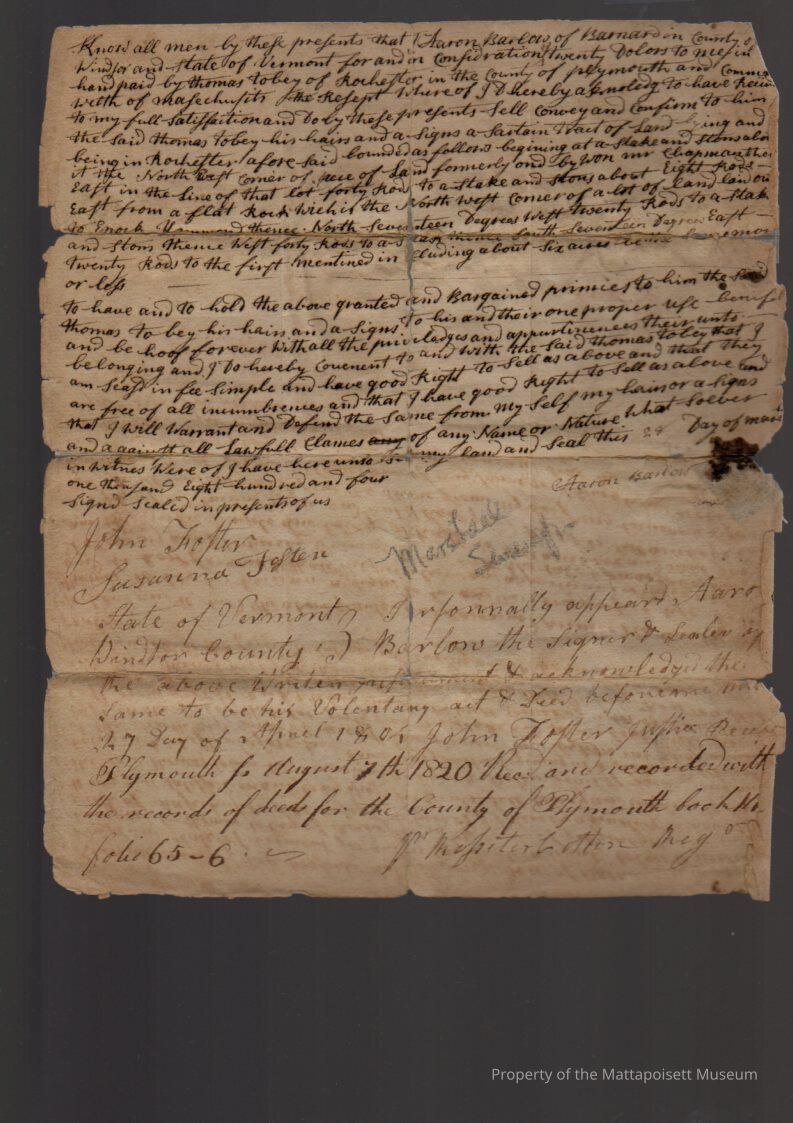 Know all men by these presents that I Aaron Barlow of Barnard in County of
Windsor and State of Vermont for and in Considiration twenty Dolors to me in
hand paid by thomas tobey of Rochester in the County of plymouth and Common
welth of Masechusits the Resept Where of I Do hereby acknoledg to have Receiv
to my full Satisfaction and Do by these presents Sell Convey and Confirm to him
the said thomas tobey his hairs and a signs a Sartain tract of Land lying and
being in Rochester afore said bounded as follows begining at a Stake and Stons
it the North East Corner of peece of Land formerly ond by won mr Chapman
East in the Line of that lot forty Rods to a Stake and Stons about Eight Rods
East from a flat Rock Wich is the North West Corner of a lot of land laid out
to Enock thence North Seventeen Degrees West twenty Rods to a Stake
and Stons thence West forty Rods to a thence South Seventeen Degrees East
twenty Rods to the first mentined in cluding about Six acres be the Same more
or less
to have and to hold the above granted and Bargained primies to him the Said
thomas to bey his hairs and a Signs to his and their one proper use benefit
and be hoof forever With all the priviledges and appurtinences their unto
belonging and I Do hereby Covenent to and With the Said thomas tobey that I
am Seasd in fee Simple and have good Right to Sell as above and that they
are free of all incumbrences and that I have good Right to Sell as above and
that I will Warrant and Defend the Same from my Self my hairs or a signs
and against all Lawfull Clames any of any Name or Nature What Soever
in witnes Were of I have here unto my hand and Seal this 28 Day of
one thousand Eight hundred and four
Signd Sealed in presents of us
Aaron Barlow
John Foster
Susanna Foster
Marshall
State of Vermont Personnally appeard Aaro
Windsor County Barlow the Signer & Sealer of
the above Writen & acknowledged the
Same to be his Volentary act & Deed before me
27 Day of April 180 John Foster Justice
Plymouth ss August 7th 1820 Recd and recorded with
the records of deeds for the County of Plymouth book
folio 65-6
Property of the Mattapoisett Museum